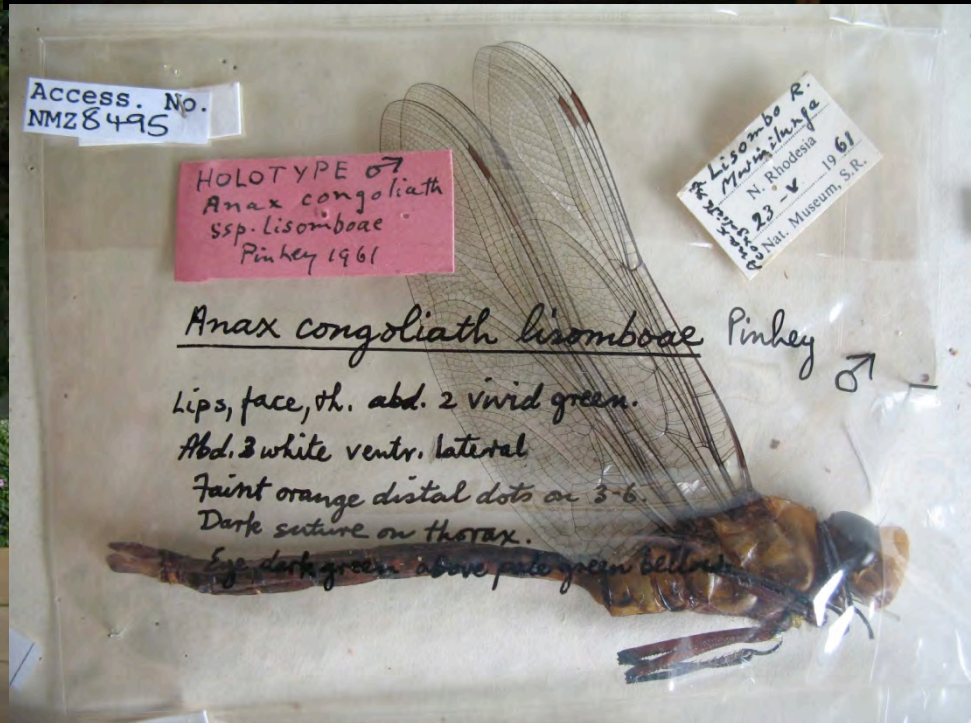 Access. No.
NMZ8495
HOLOTYPE ♂
Anax congoliath
ssp. lisomboae
Pinhey 1961
Lisombo R.
Mwinilunga
N. Rhodesia
23 - V 1961
Nat. Museum, S.R.
Anax congoliath lisomboae Pinhey
♂
Lips, face, th. abd. 2 vivid green.
Abd. 3 white ventr. lateral
Faint orange distal dots on 3-6.
Dark suture on thorax.
Eye dark green above pale green bellow.